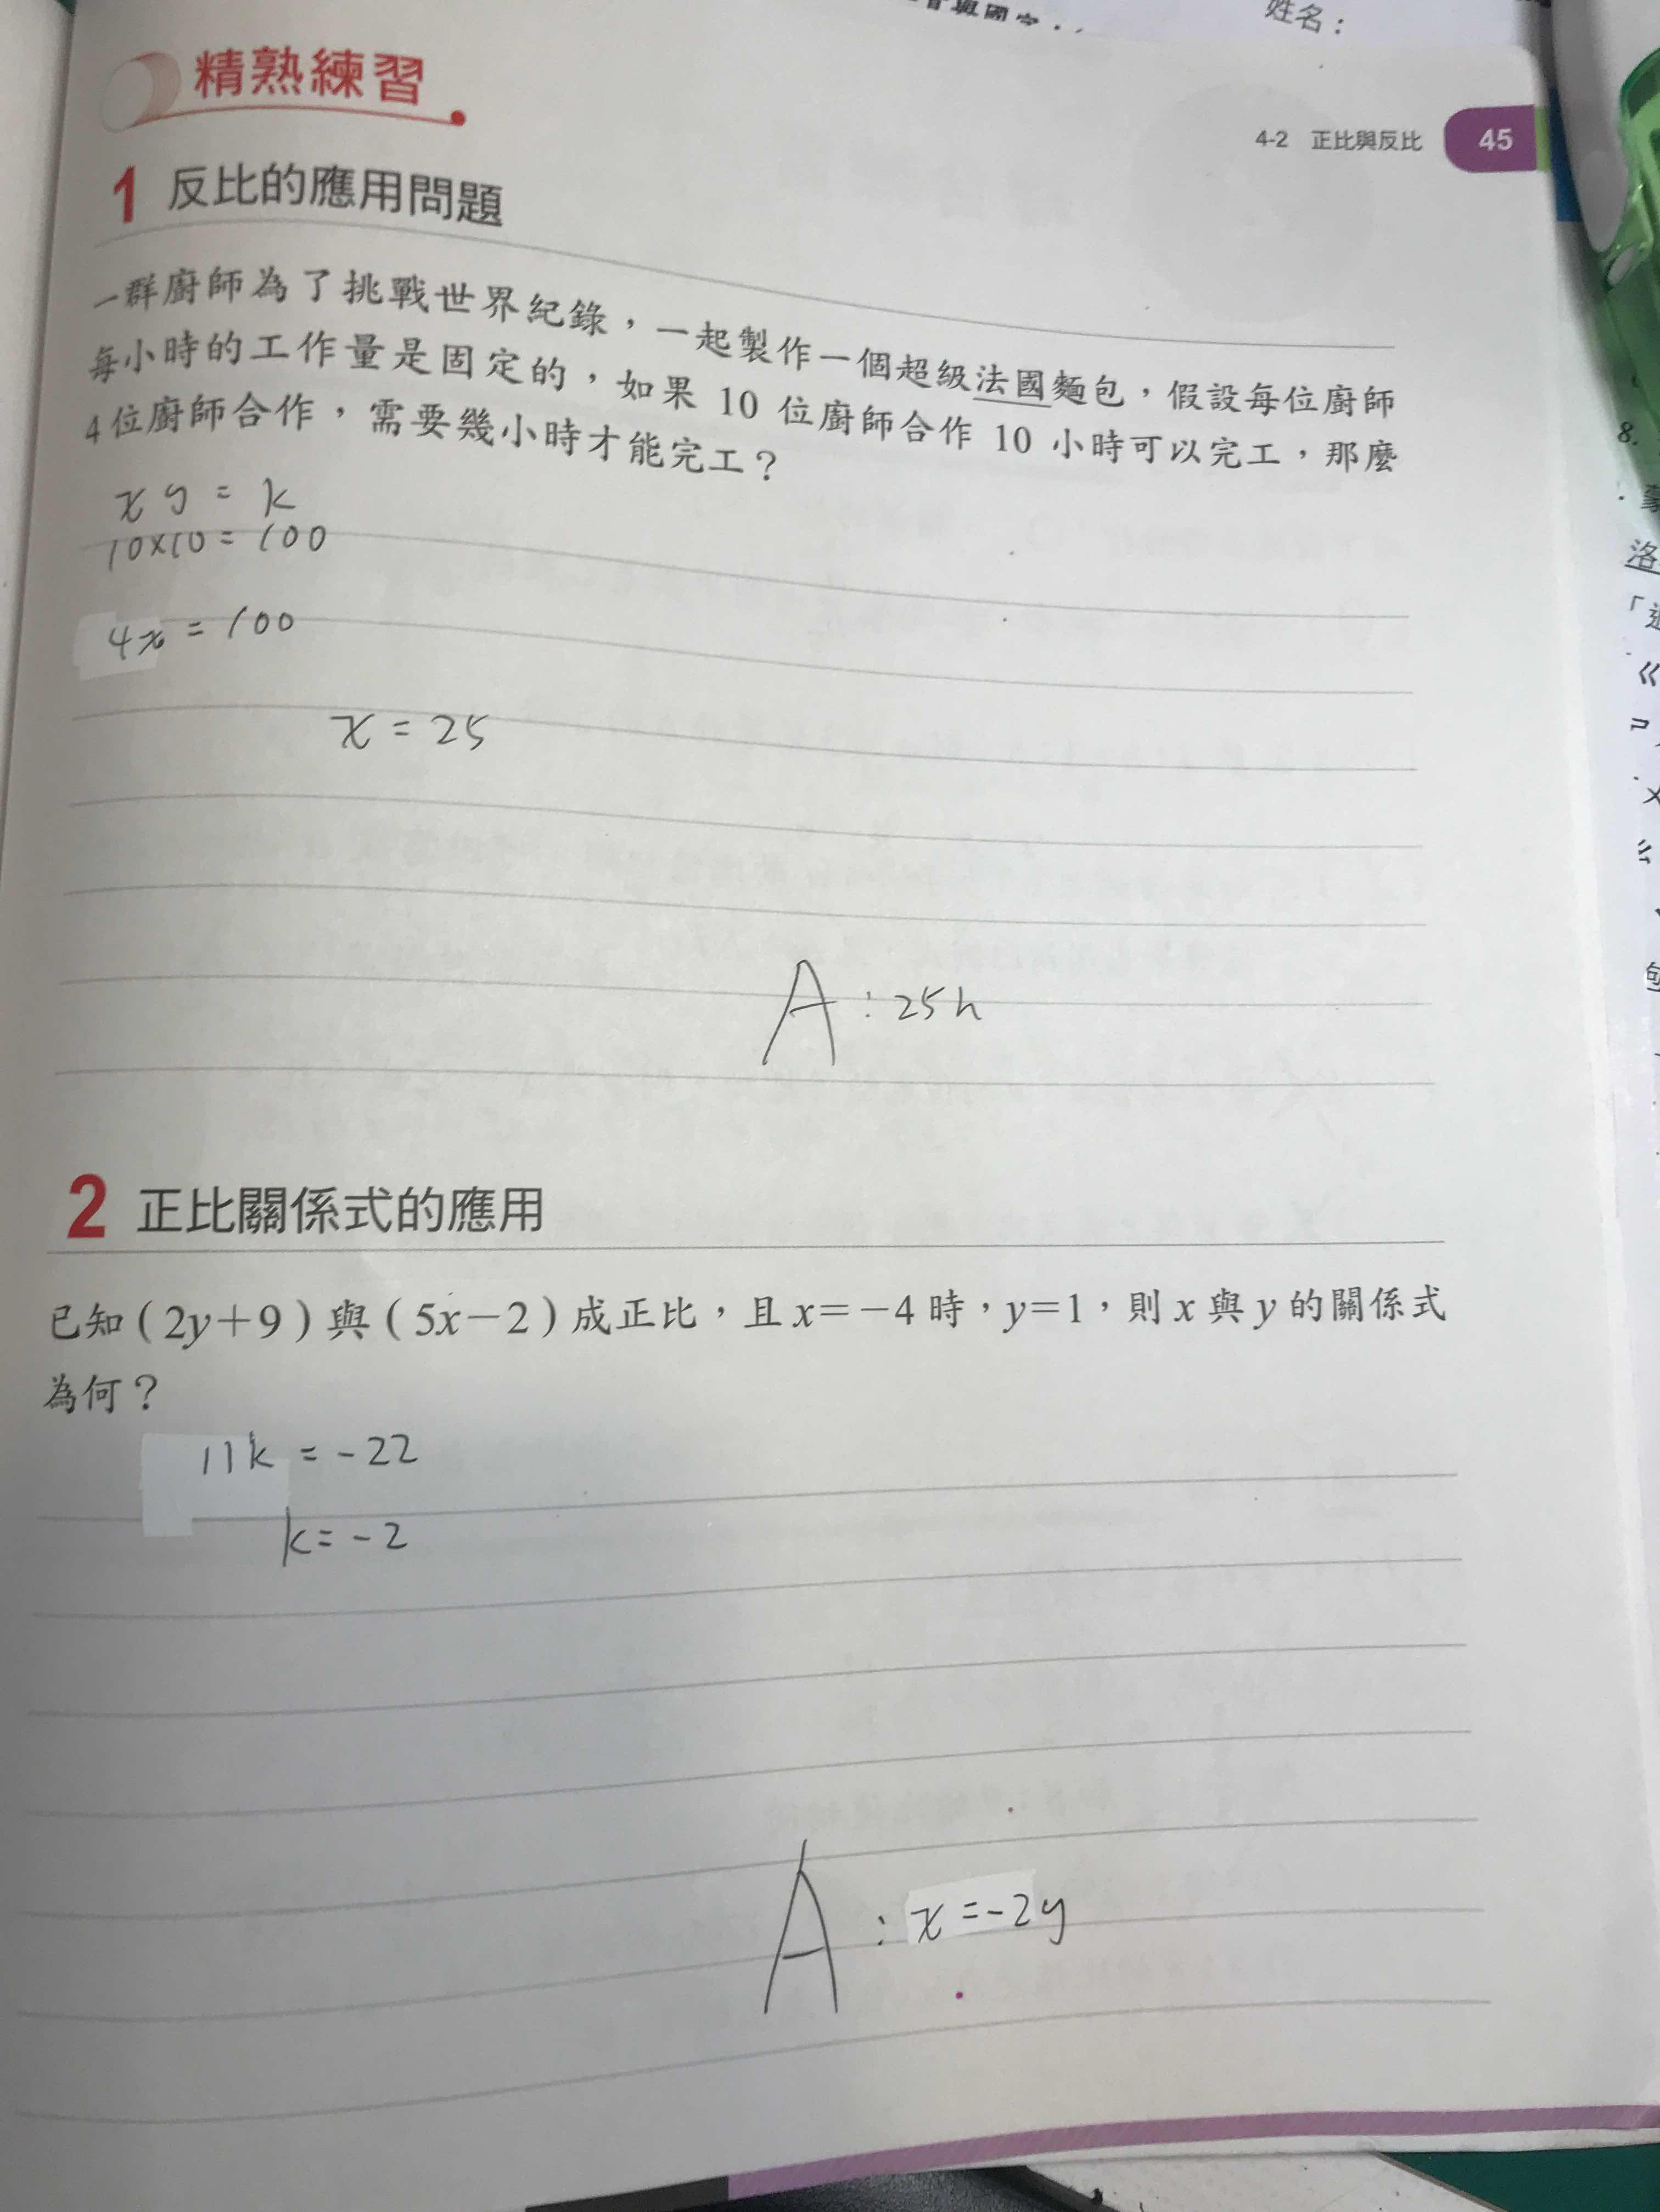 姓名：
精熟練習
4-2 正比與反比 45
1 反比的應用問題
一群廚師為了挑戰世界紀錄，一起製作一個超級法國麵包，假設每位廚師
每小時的工作量是固定的，如果 10 位廚師合作 10 小時可以完工，那麼
4位廚師合作，需要幾小時才能完工？
xy = k
10×10 = 100
4x = 100
x = 25
A：25h
2 正比關係式的應用
已知（2y＋9）與（5x－2）成正比，且x＝－4時，y＝1，則x與y的關係式
為何？
11k = -22
k = -2
A：x = -2y
8.
洛